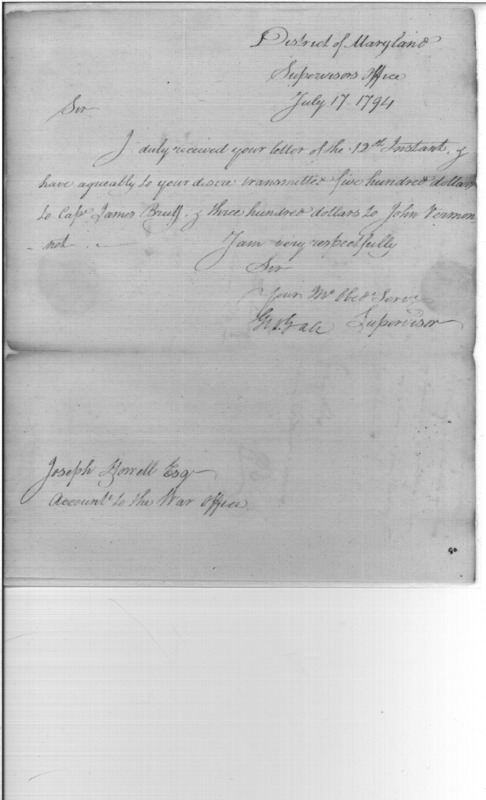 District of Maryland
Supervisors Office
July 17 1794
Sir
I duly received your letter of the 12th Instant, &
have agreably to your desire transmitted five hundred dollars
to Capt James Bruff, & three hundred dollars to John Vermon
-net
I am very respectfully
Sir
your Mo Obed Serv
Geo Gale Supervisor
Joseph Howell Esq
Accountt to the War Office